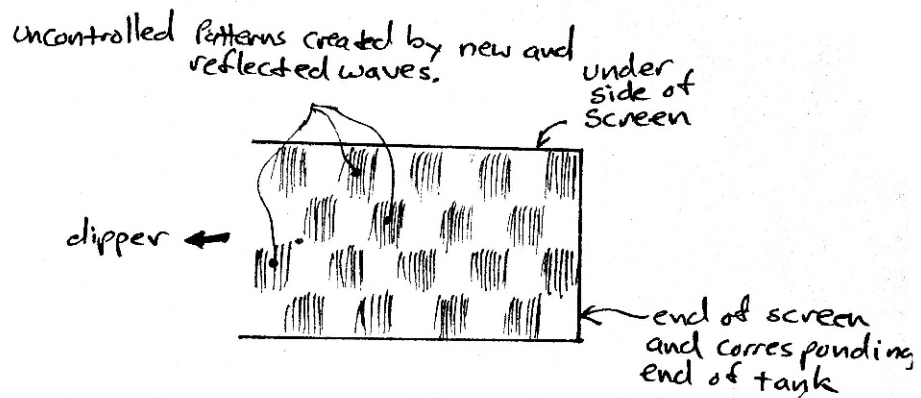 uncontrolled Patterns created by new and
reflected waves.
under
side of
screen
dipper
end of screen
and corresponding
end of tank